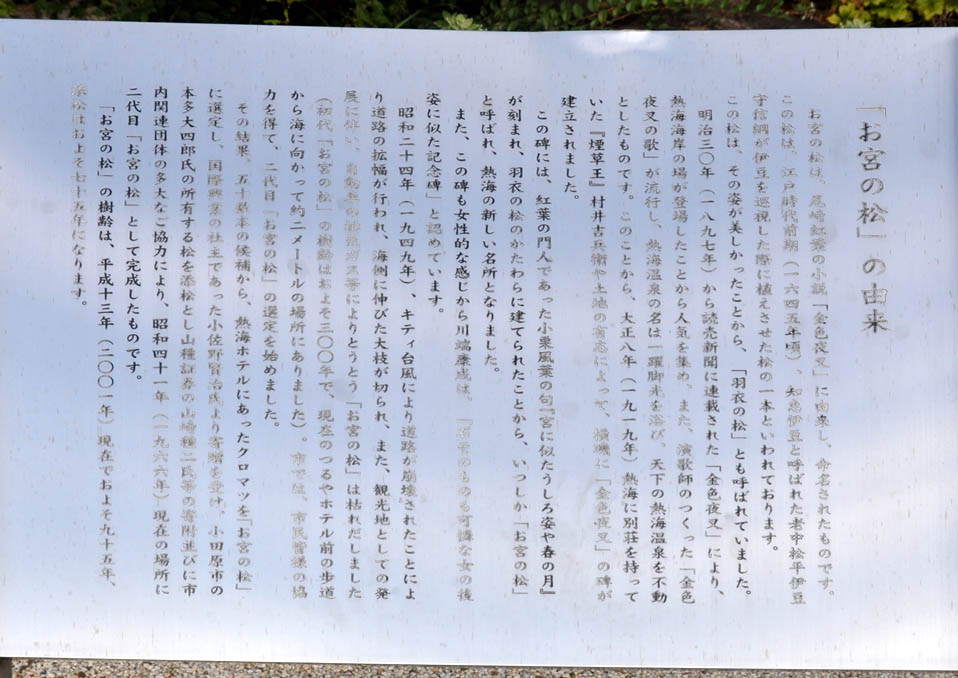 「お宮の松」の由来
お宮の松は、尾崎紅葉の小説「金色夜叉」に由来し、命名されたものです。
この松は、江戸時代前期（一六四五年頃）、知恵伊豆と呼ばれた老中松平伊豆
守信綱が伊豆を巡視した際に植えさせた松の一本といわれております。
この松は、その姿が美しかったことから、「羽衣の松」とも呼ばれていました。
明治三〇年（一八九七年）から読売新聞に連載された「金色夜叉」により、
熱海海岸の場が登場したことから人気を集め、また、演歌師のつくった「金色
夜叉の歌」が流行し、熱海温泉の名は一躍脚光を浴び、天下の熱海温泉を不動
としたものです。このことから、大正八年（一九一九年）熱海に別荘を持って
いた『煙草王』村井吉兵衛や土地の有志によって、横磯に「金色夜叉」の碑が
建立されました。
この碑には、紅葉の門人であった小栗風葉の句『宮に似たうしろ姿や春の月』
が刻まれ、羽衣の松のかたわらに建てられたことから、いつしか「お宮の松」
と呼ばれ、熱海の新しい名所となりました。
また、この碑も女性的な感じから川端康成は、「石そのものも可憐な女の後
姿に似た記念碑」と認めています。
昭和二十四年（一九四九年）、キティ台風により道路が崩壊されたことによ
り道路の拡幅が行われ、海側に伸びた大枝が切られ、また、観光地としての発
展に伴い、自動車の排気ガス等によりとうとう「お宮の松」は枯れだしました
（初代「お宮の松」の樹齢はおよそ三〇〇年で、現在のつるやホテル前の歩道
から海に向かって約二メートルの場所にありました）。市では、市民皆様の協
力を得て、二代目「お宮の松」の選定を始めました。
その結果、五十数本の候補から、熱海ホテルにあったクロマツを「お宮の松」
に選定し、国際興業の社主であった小佐野賢治氏より寄贈を受け、小田原市の
本多大四郎氏の所有する松を添松とし山種証券の山崎種二氏等の寄附並びに市
内関連団体の多大なご協力により、昭和四十一年（一九六六年）現在の場所に
二代目「お宮の松」として完成したものです。
「お宮の松」の樹齢は、平成十三年（二〇〇一年）現在でおよそ九十五年、
添松はおよそ七十五年になります。